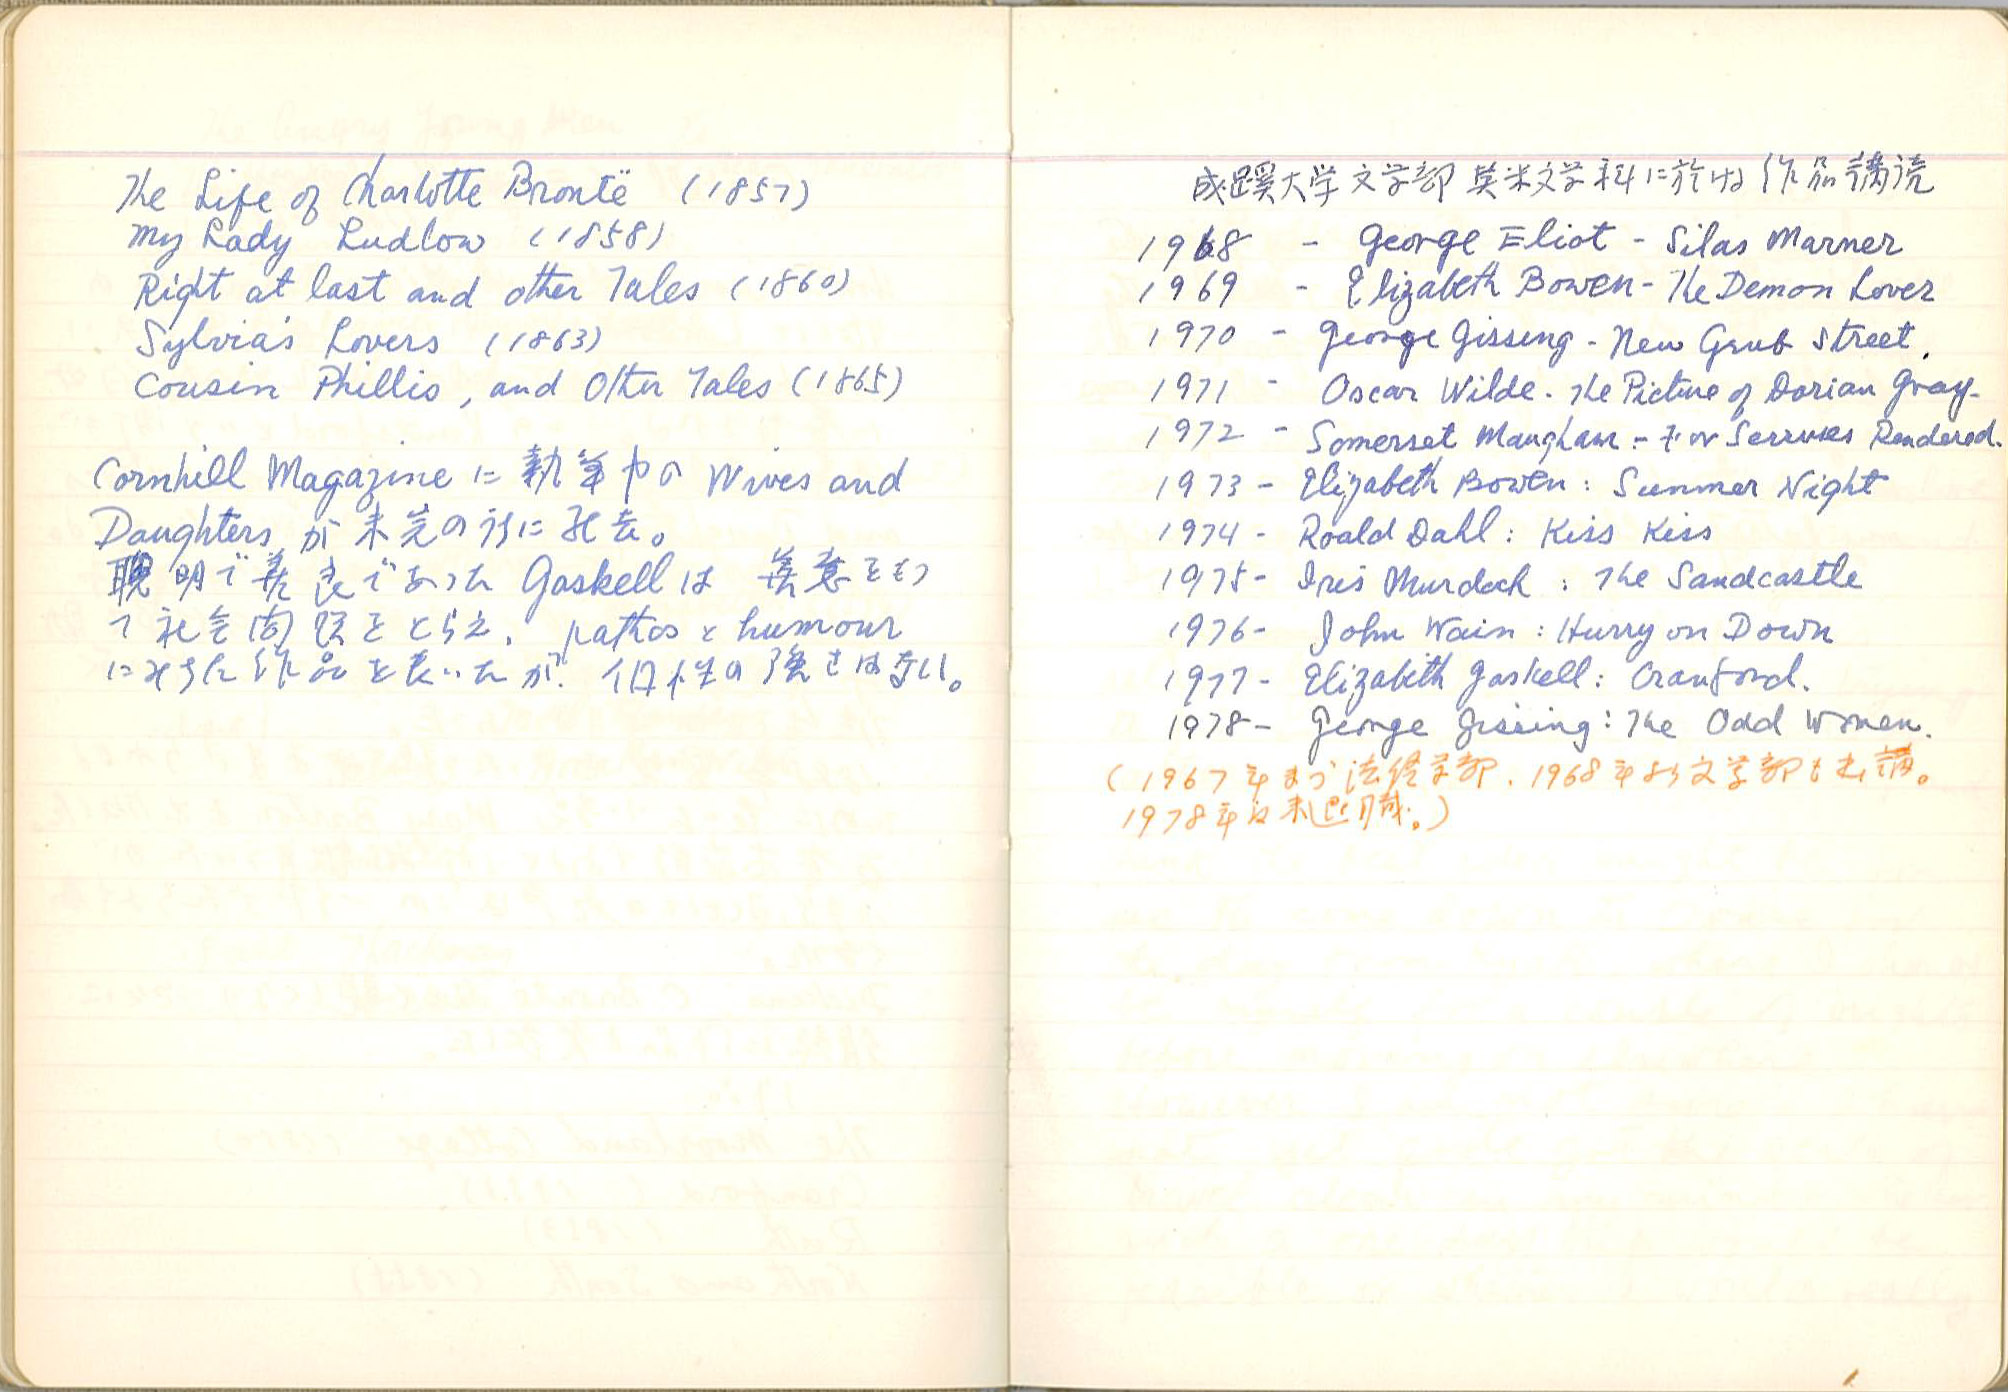 The Life of Charlotte Brontë (1857)
My Lady Ludlow (1858)
Right at last and other Tales (1860)
Sylvia's Lovers (1863)
Cousin Phillis, and Other Tales (1865)
Cornhill Magazine に執筆中の Wives and
Daughters が未完の行に死去。
聰明で善良であった Gaskell は 善意をもっ
て社会問題をとらえ、pathos と humour
にみちた作品を表いたが、個性の強さはない。
成蹊大学文学部英米文学科に於ける作品講読
1968 - George Eliot - Silas Marner
1969 - Elizabeth Bowen - The Demon Lover
1970 - George Gissing - New Grub Street.
1971 - Oscar Wilde - The Picture of Dorian Gray-
1972 - Somerset Maugham - For Services Rendered.
1973 - Elizabeth Bowen : Summer Night
1974 - Roald Dahl : Kiss Kiss
1975 - Iris Murdoch : The Sandcastle
1976 - John Wain : Hurry on Down
1977 - Elizabeth Gaskell : Cranford.
1978 - George Gissing : The Odd Women.
(1967年まで法経学部、1968年より文学部も出講。
1978年度末退職。)